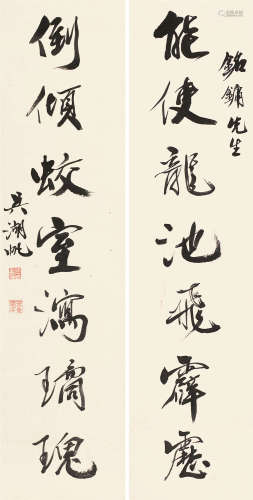 铭鏞先生
能使龍池飛霹靂
倒傾蛟室瀉璚瑰
吳湖帆